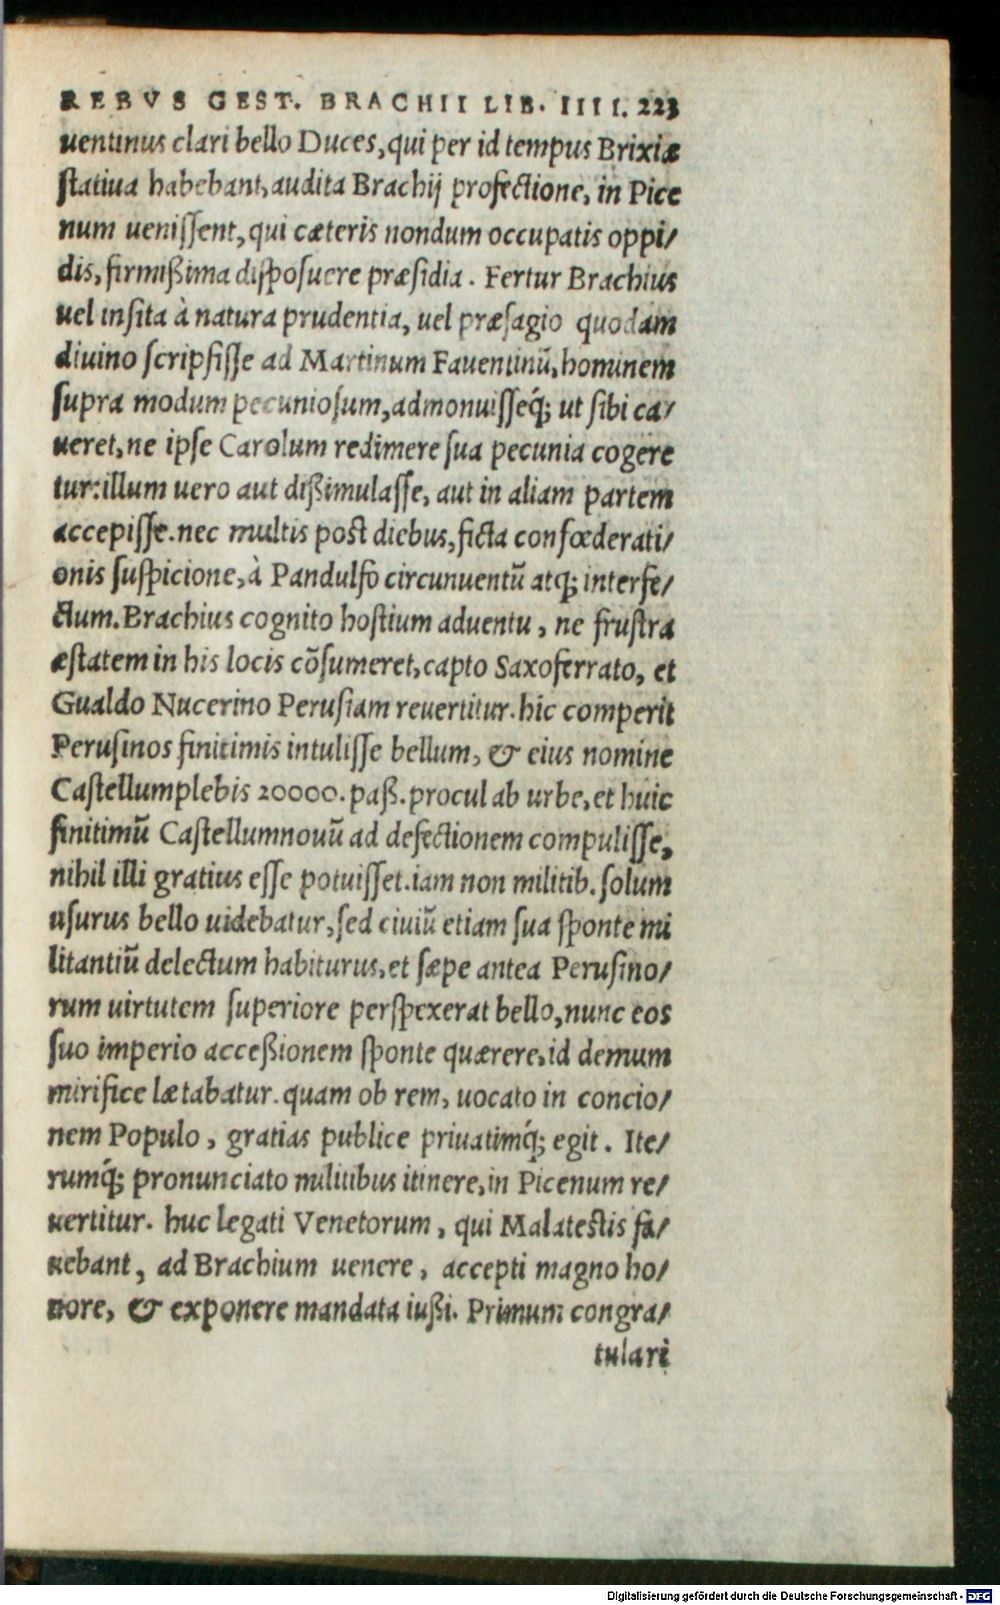 REBVS GEST. BRACHII LIB. IIII. 223
uentinus clari bello Duces, qui per id tempus Brixiæ
statiua habebant, audita Brachij profectione, in Pice
num uenissent, qui cæteris nondum occupatis oppi/
dis, firmißima disposuere præsidia. Fertur Brachius
uel insita à natura prudentia, uel præsagio quodam
diuino scripsisse ad Martinum Fauentinū, hominem
supra modum pecuniosum, admonuisseq́; ut sibi ca/
ueret, ne ipse Carolum redimere sua pecunia cogere
tur: illum uero aut dißimulasse, aut in aliam partem
accepisse. nec multis post diebus, ficta confœderati/
onis suspicione, à Pandulfo circunuentū atq; interfe/
ctum. Brachius cognito hostium aduentu, ne frustra
æstatem in his locis cōsumeret, capto Saxoferrato, et
Gualdo Nucerino Perusiam reuertitur. hic comperit
Perusinos finitimis intulisse bellum, & eius nomine
Castellumplebis 20000. paß. procul ab urbe, et huic
finitimū Castellumnouū ad defectionem compulisse,
nihil illi gratius esse potuisset. iam non militib. solum
usurus bello uidebatur, sed ciuiū etiam sua sponte mi
litantiū delectum habiturus, et sæpe antea Perusino/
rum uirtutem superiore perspexerat bello, nunc eos
suo imperio acceßionem sponte quærere, id demum
mirifice lætabatur. quam ob rem, uocato in concio/
nem Populo, gratias publice priuatimq́; egit. Ite/
rumq́; pronunciato militibus itinere, in Picenum re/
uertitur. huc legati Venetorum, qui Malatestis fa/
uebant, ad Brachium uenere, accepti magno ho/
nore, & exponere mandata iußi. Primum congra/
tulari
Digitalisierung gefördert durch die Deutsche Forschungsgemeinschaft - DFG